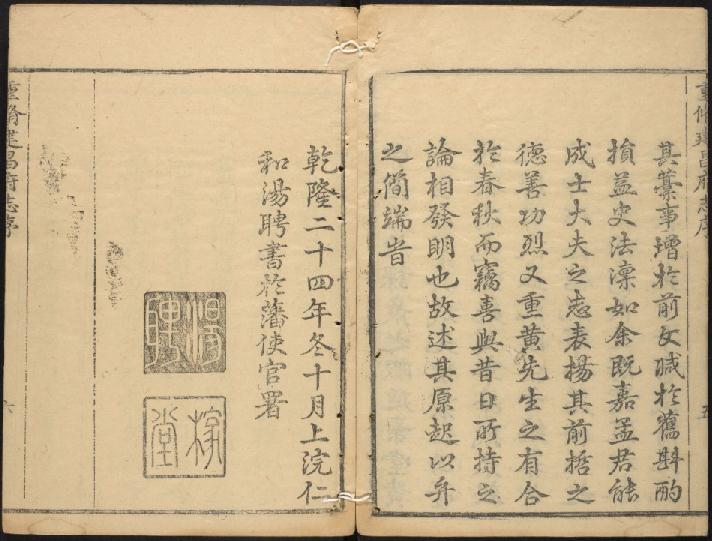 重修建昌府志序
其藁事增於前文减於舊斟酌
損益史法凜如余既嘉孟君能
成士大夫之志表揚其前哲之
德善功烈又重黄先生之有合
於春秋而竊喜與昔日所持之
論相發明也故述其原起以弁
之簡端旹
五
乾隆二十四年冬十月上浣仁
和湯聘書於藩使官署
湯聘
稼堂
重脩建昌府志序
六